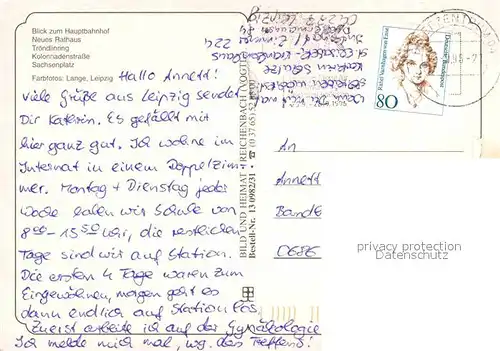 Blick zum Hauptbahnhof
Neues Rathaus
Tröndlinring
Kolonnadenstraße
Sachsenplatz
Farbfotos: Lange, Leipzig
Hallo Annett!
viele Grüße aus Leipzig sendet
Dir Kathrin. Es gefällt mit
hier ganz gut. Ich wohne im
Internat in einem Doppelzim-
mer. Montag + Dienstag jeder
Woche haben wir Schule von
8⁰⁰ - 15⁰⁰ Uhr, die restlichen
Tage sind wir auf Station.
Die ersten 4 Tage waren zum
Eingewöhnen, morgen geht es
dann endlich auf Station los.
Zuerst arbeite ich auf der Gynäkologie
Ich melde mich mal, wg. des Treffens!
BILD UND HEIMAT · REICHENBACH (VOGTL
Bestell-Nr. 13 0982/31
Kathrin Schulze
St. Elisabeth Krankenhaus
Zimmer 224
Leipzig
Rahel Varnhagen von Ense
Deutsche Bundespost
80
An
Annett
Bande
privacy protection
Datenschutz